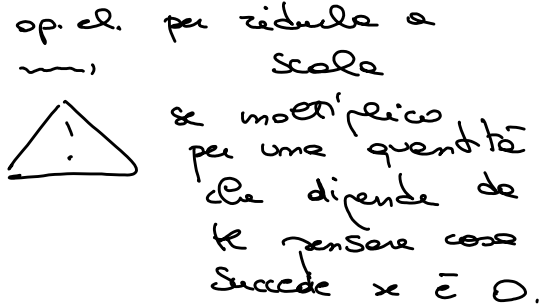 op. el. per ridurla a
scala
!
se moltiplico
per una quantità
che dipende da
k pensare cosa
succede se è 0.